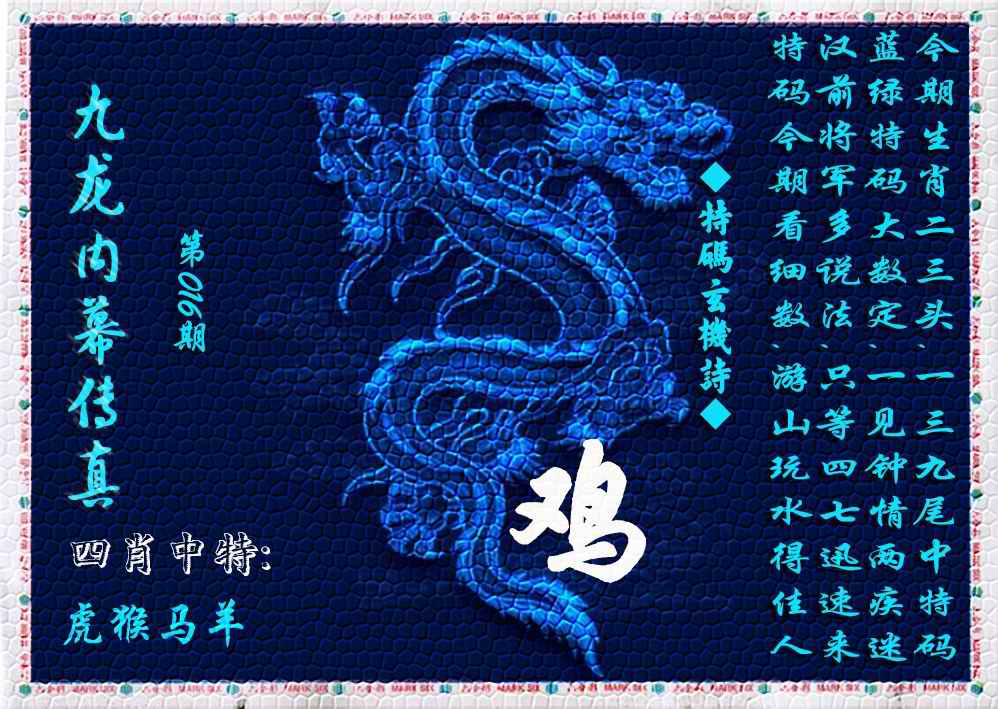 今期生肖二三头、一三九尾中特码
蓝绿特码大数定、一见钟情两疾迷
汉前将军多说法、只等四七迅速来
特码今期看细数、游山玩水得佳人
◆特碼玄機詩◆
九龙内幕传真
第016期
鸡
四肖中特:
虎猴马羊